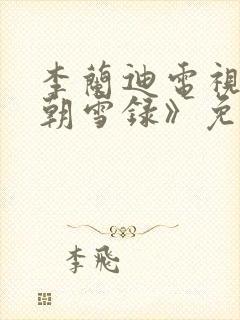 李蘭迪電視
朝雪録》免
李飛